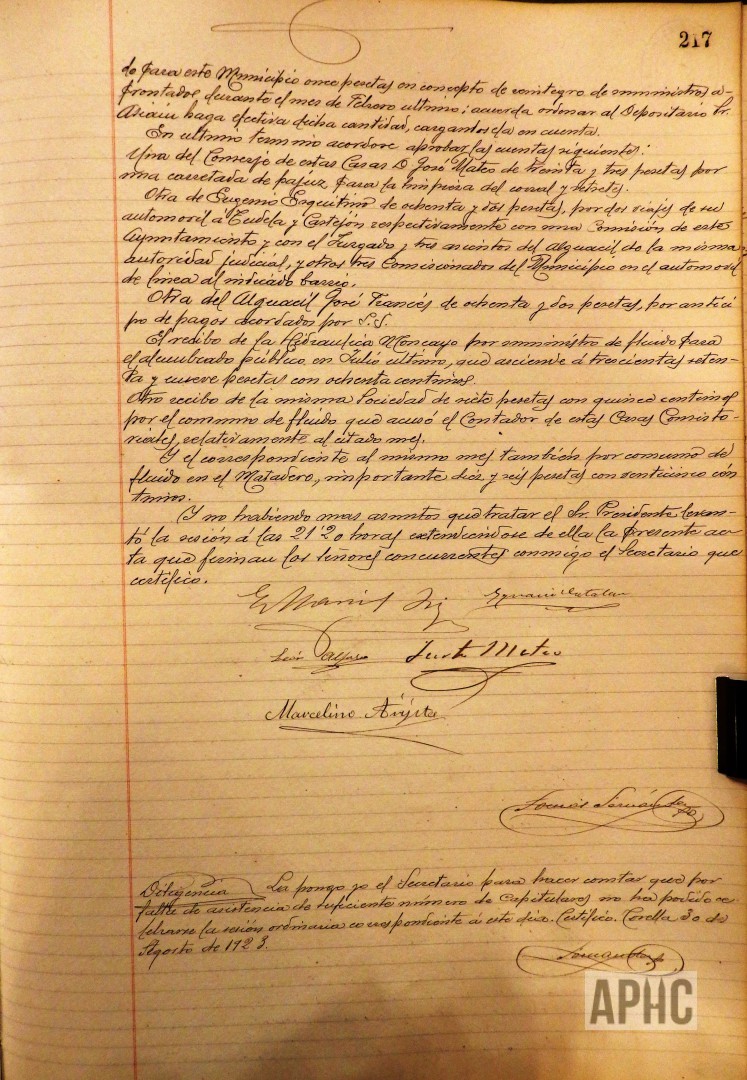 217
do para este Municipio once pesetas en concepto de reintegro de suministros a-
frontados durante el mes de Febrero ultimo; acuerda ordenar al Depositario Sr.
Asiain haga efectiva dicha cantidad, cargandosela en cuenta.
En ultimo termino acordose aprobar las cuentas siguientes:
Una del Conserje de estas Casas D. José Mateo de treinta y tres pesetas por
una carretada de pajuz para la limpieza del corral y retretes.
Otra de Eugenio de ochenta y dos pesetas, por dos viajes de su
automovil á Tudela y Castejón respectivamente con una Comisión de este
Ayuntamiento y con el Juzgado y tres asientos del alguacil de la misma
autoridad judicial, y otros tres Comisionados del Municipio en el automovil
de linea al indicado barrio.
Otra del Alguacil José Francés de ochenta y dos pesetas, por antici
po de pagos acordados por S.S.
El recibo de la Hidraulica Moncayo por suministro de fluido para
el alumbrado público en Julio ultimo, que asciende á trescientas seten-
ta y nueve pesetas con ochenta centimos.
Otro recibo de la misma Sociedad de siete pesetas con quince centimos
por el consumo de fluido que acusó el Contador de estas Casas Consisto-
riales, relativamente al citado mes.
Y el correspondiente al mismo mes tambien por consumo de
fluido en el Matadero, importante diez y seis pesetas con venticinco cén
timos.
Y no habiendo mas asuntos que tratar el Sr. Presidente levan-
tó la sesión á las 21'20 horas extendiendose de ella la presente ac-
ta que firman los señores concurrentes conmigo el Secretario que
certifico.
Ignacio Catalan
León Alfaro Justo Mateo
Marcelino
Tomás
Diligencia La pongo yo el Secretario para hacer constar que por
falta de asistencia de suficiente número de Capitulares no ha podido ce-
lebrarse la sesión ordinaria correspondiente á este dia. Certifico. Corella 30 de
Agosto de 1923.
APHC